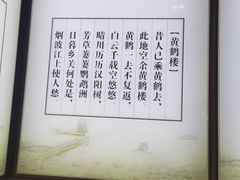 【黄鹤楼】
昔人已乘黄鹤去，
此地空余黄鹤楼
黄鹤一去不复返，
白云千载空悠悠
晴川历历汉阳树，
芳草萋萋鹦鹉洲
日暮乡关何处是，
烟波江上使人愁